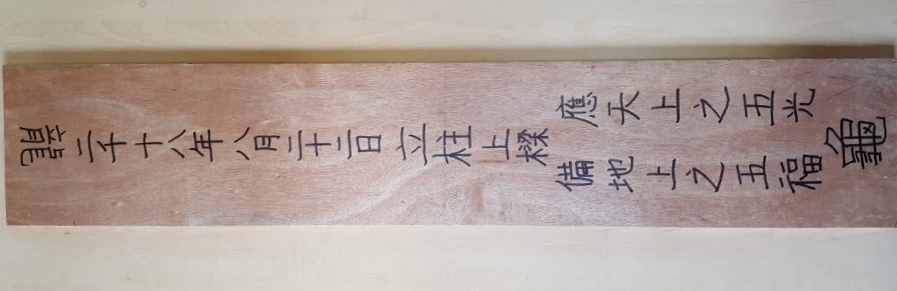 龍 二千十八年 八月 二十二日 立柱上樑
應天上之五光
備地上之五福
龜